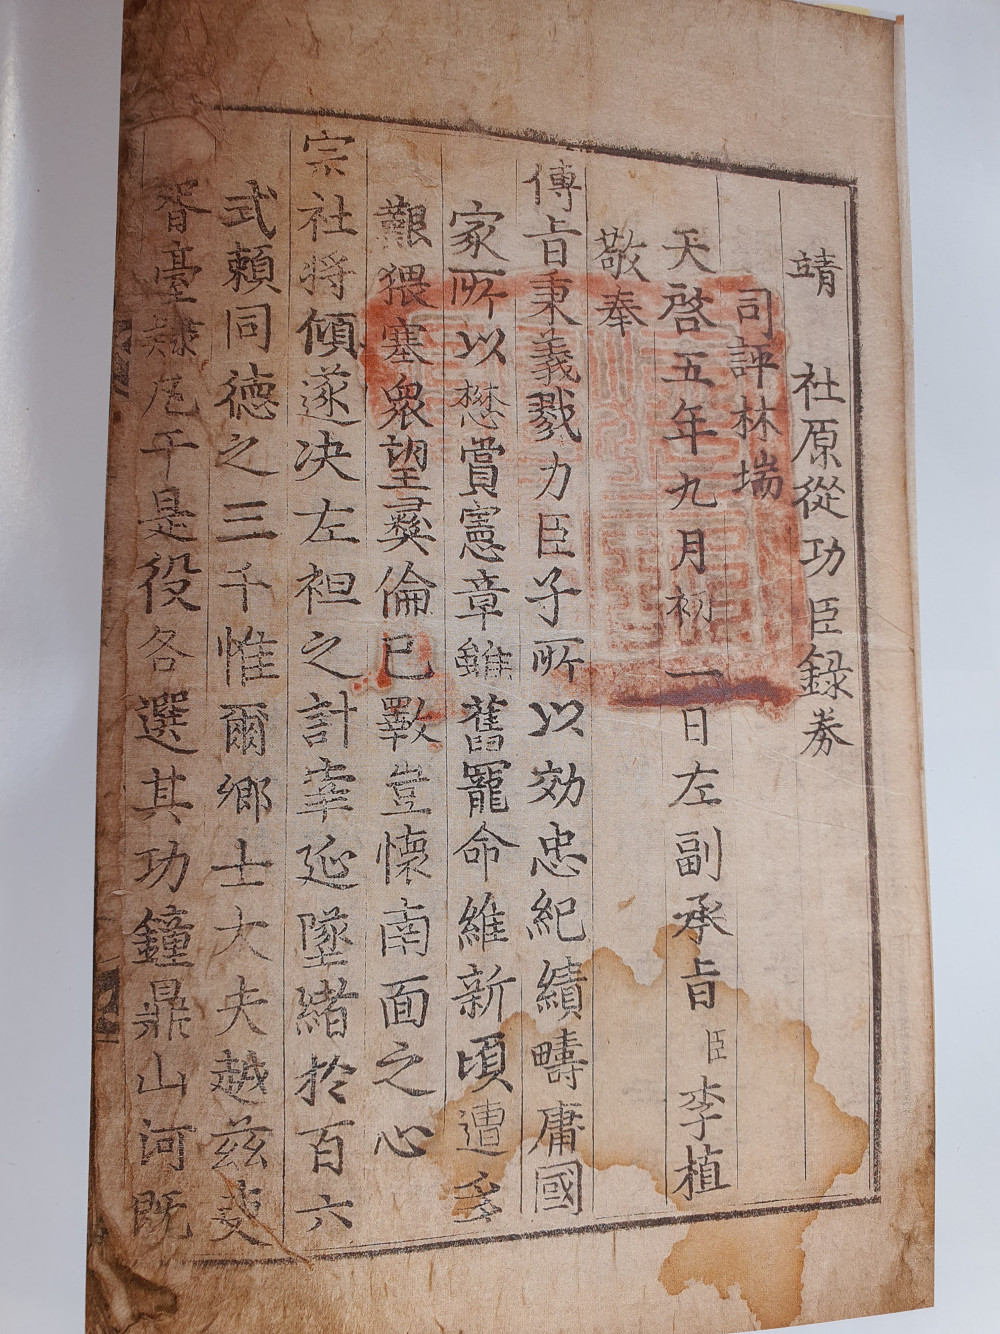 靖 社原從功臣錄券
司評林瑞
天啓五年九月初一日左副承旨臣李植
敬奉
傳旨秉義戮力臣子所以効忠紀績疇庸國
家所以懋賞憲章雖舊寵命維新頃遭多
艱猥塞衆望彛倫已斁豈懷南面之心
宗社將傾遂決左袒之計幸延墜緖於百六
式賴同德之三千惟爾鄕士大夫越玆吏
胥臺隷凡干是役各選其功鐘鼎山河旣